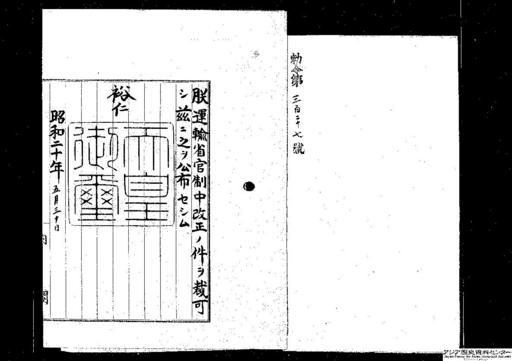 勅令第三百三十七號
朕運輸省官制中改正ノ件ヲ裁可
シ茲ニ之ヲ公布セシム
裕仁
天皇御璽
昭和二十年五月三十日
内閣
アジア歴史資料センター